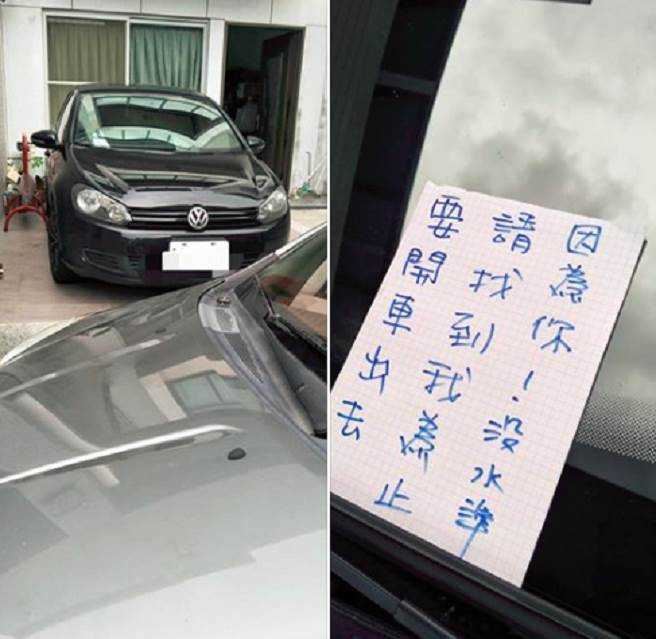 因為你！没水準
請找到我為止
要開車出去
VW